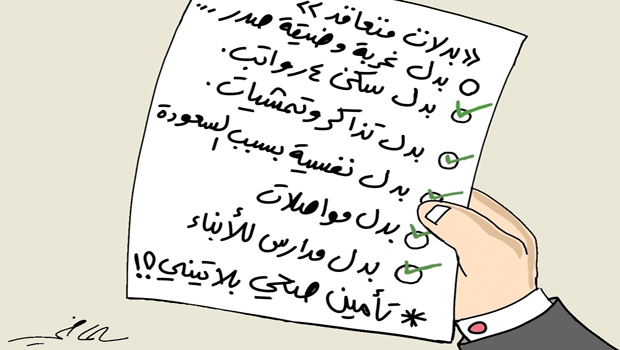 «بدلات متعاقد»
بدل غربة وضيقة صدر...
بدل سكن ٤ رواتب.
بدل تذاكر وتمشيات.
بدل نفسية بسبب السعودة
بدل مواصلات
بدل مدارس للأبناء
* تأمين صحي بلاتيني؟!!